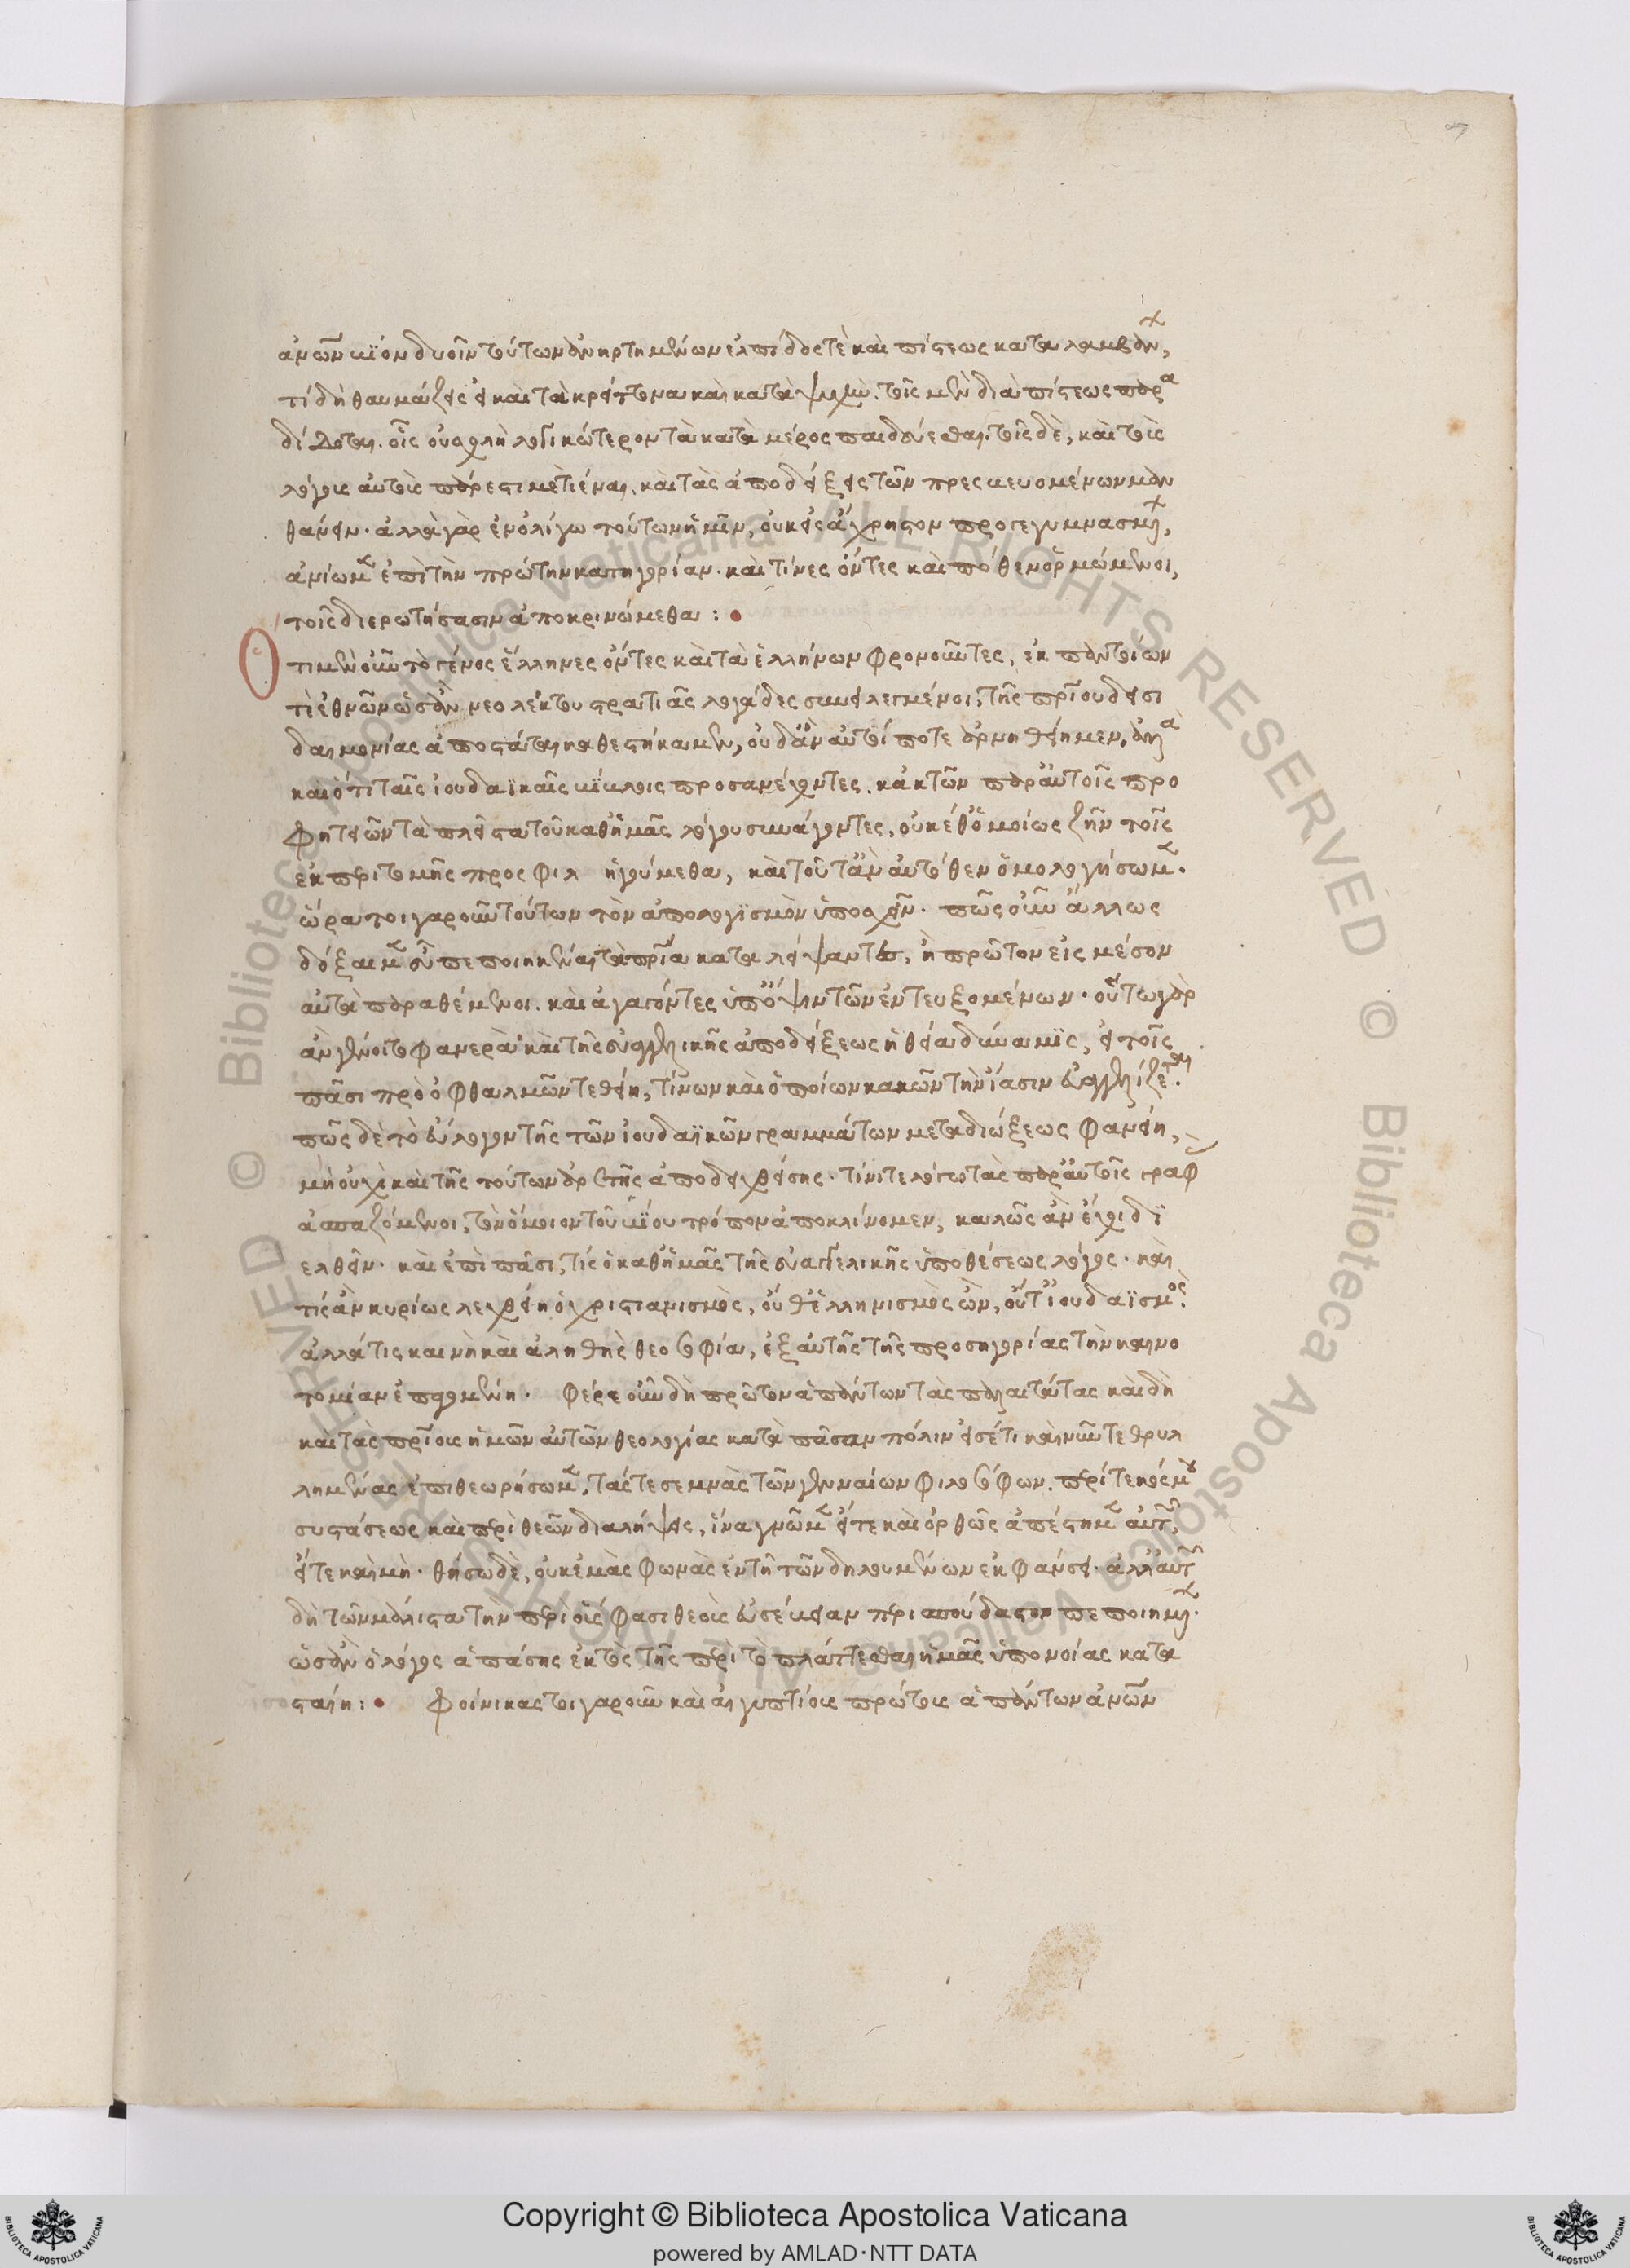 ἀνων βίον δυοῖν τούτων ἀνηρτημένων ἐλπίδος τὲ καὶ πίστεως καταλαμβάνων,
τί δὴ θαυμάζειν εἰ καὶ τὰ κρείττονα καὶ κατὰ ψυχὴν. τοῖς μὲν διὰ πίστεως παρα
δίδοται. οἷς οὐ σχολὴ λογικώτερον τὰ κατὰ μέρος παιδεύεσθαι. τοῖς δὲ, καὶ τοὺς
λόγους αὐτοὺς πάρεστι μετιέναι. καὶ τὰς ἀποδείξεις τῶν πρεσβευομένων μαν
θάνειν. ἀλλὰ γὰρ ἐν ὀλίγω τούτων ἡμῖν, οὐκ εἰς ἄχρηστον προγεγυμνασμένων,
ἀνίωμεν ἐπὶ τὴν πρώτην κατηγορίαν. καὶ τίνες ὄντες καὶ πόθεν ὁρμώμενοι,
τοῖς διερωτήσασιν ἀποκρινώμεθα :
Ὅτι μὲν οὖν τὸ γένος ἕλληνες ὄντες καὶ τὰ ἑλλήνων φρονοῦντες, ἐκ παντοίων
τὲ ἐθνῶν ὡσὰν νεολέκτου στρατιᾶς λογάδες συνειλεγμένοι, τῆς πατρίου δεισι
δαιμονίας ἀποστάται καθεστήκαμεν, οὐδ' ἂν αὐτοί ποτε ἀρνηθείημεν. ἀλλὰ
καὶ ὅτι ταῖς ἰουδαϊκαῖς βίβλοις προσανέχοντες. κἀκ τῶν παρ' αὐτοῖς προ
φητειῶν τὰ πλεῖστα τοῦ καθ' ἡμᾶς λόγου συνάγοντες, οὐκέθ' ὁμοίως ζῆν τοῖς
ἐκ περιτομῆς προσφιλ ἡγούμεθα, καὶ τοῦτ' ἂν αὐτόθεν ὁμολογήσωμεν.
ὥρα τοιγαροῦν τούτων τὸν ἀπολογϊσμὸν ὑποσχεῖν. πῶς οὖν ἄλλως
δόξαιμεν εὖ πεποιηκέναι τὰ πάτρια καταλείψαντες, ἢ πρῶτον εἰς μέσον
αὐτὰ παραθέμενοι. καὶ ἀγαγόντες ὑπ' ὄψιν τῶν ἐντευξομένων. οὕτω γὰρ
ἂν γένοιτο φανερὰ καὶ τῆς εὐαγγελικῆς ἀποδείξεως ἡ θεία δύναμϊς, εἰ τοῖς
πᾶσι πρὸ ὀφθαλμῶν τεθείη, τίνων καὶ ὁποίων κακῶν τὴν ἴασιν εὐαγγελίζεται.
πῶς δὲ τὸ εὔλογον τῆς τῶν ἰουδαϊκῶν γραμμάτων μεταδιώξεως φανείη,
μὴ οὐχὶ καὶ τῆς τούτων ἀρετῆς ἀποδειχθείσης. τίνι τε λόγω τὰς παρ' αὐτοῖς γραφ
ἀσπαζόμενοι, τὸν ὅμοιον τοῦ βίου τρόπον ἀποκλίνομεν, καλῶς ἂν ἔχοι δϊ
ελθεῖν. καὶ ἐπὶ πᾶσι, τίς ὁ καθ' ἡμᾶς τῆς εὐαγγελικῆς ὑποθέσεως λόγος. καὶ
τίς ἂν κυρίως λεχθείη ὁ χριστιανισμὸς, οὔθ' ἑλληνισμὸς ὢν, οὔτ' ἰουδαϊσμὸς.
ἀλλά τις καινὴ καὶ ἀληθὴς θεοσοφία, ἐξ αὐτῆς τῆς προσηγορίας τὴν καινο
τομίαν ἐπαγομένη. Φέρε οὖν δὴ πρῶτον ἁπάντων τὰς παλαιτάτας καὶ δὴ
καὶ τὰς πατρίους ἡμῶν αὐτῶν θεολογίας κατὰ πᾶσαν πόλιν εἰσέτι καὶ νῦν τεθρυλ
λημένας ἐπιθεωρήσωμεν. τάς τε σεμνὰς τῶν γενναίων φιλοσόφων. περί τε κόσμου
συστάσεως καὶ περὶ θεῶν διαλήψεις, ἵνα γνῶμεν εἴτε καὶ ὀρθῶς ἀπέστημεν αὐτῶν,
εἴτε καὶ μὴ. θήσω δὲ, οὐκ ἐμὰς φωνὰς ἐν τῆ τῶν δηλουμένων ἐκφάνσει. ἀλλ' αὐτῶν
δὴ τῶν μάλιστα τὴν περὶ οὕς φασι θεοὺς εὐσέβειαν περισπούδαστον πεποιημένων.
ὡσὰν ὁ λόγος ἁπάσης ἐκτὸς τῆς περὶ τὸ πλάττεσθαι ἡμᾶς ὑπονοίας κατα
σταίη : Φοίνικας τοιγαροῦν καὶ αἰγυπτίους πρώτους ἁπάντων ἀνων
Copyright © Biblioteca Apostolica Vaticana
powered by AMLAD·NTT DATA